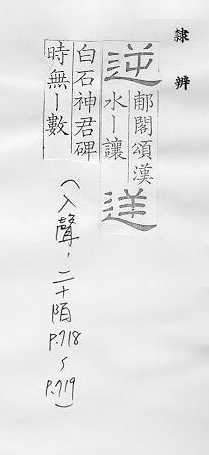 隸辨
逆
郙閣頌漢
水丨讓
逆
白石神君碑
時無丨數
(入聲,二十陌
P.718
~
P.719)